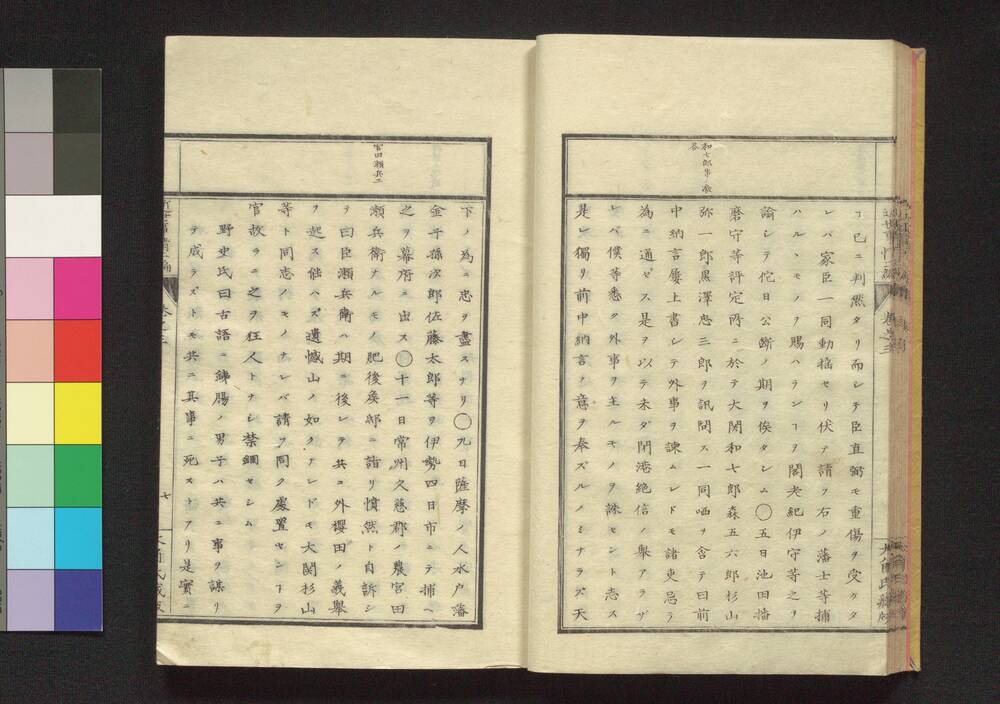 和七郎等ノ激
答
ヿ已ニ判然タリ而シテ臣直弼モ重傷ヲ受ケタ
レバ家臣一同動揺セリ伏テ請フ右ノ藩士等捕
ハル丶モノヲ賜ハランヿヲ閣老紀伊守等之ヲ
諭シテ佗日公断ノ期ヲ俟タシム〇五日池田播
磨守等評定所ニ於テ大関和七郎森五六郎杉山
弥一郎黒澤忠三郎ヲ訊問ス一同哂ヲ含テ曰前
中納言屡上書シテ外事ヲ諫ムレドモ諸吏忌テ
為ニ通ゼス是ヲ以テ未ダ閉港絶信ノ挙アラザ
レバ僕等悉ク外事ヲ主ルモノヲ誅セント志ス
是レ獨リ前中納言ノ意ヲ奉ズルノミナラズ天
宮田瀬兵エ
下ノ為ニ忠ヲ盡スナリ〇九日薩摩ノ人水户藩
金子孫次郎佐藤太郎等ヲ伊勢四日市ニテ捕ヘ
之ヲ幕府ニ出ス〇十一日常州久慈郡ノ農宮田
瀬兵衛ナルモノ肥後矦邸ニ詣リ憤然ト自訴シ
テ曰臣瀬兵衛ハ期ニ後レテ共ニ外櫻田ノ義舉
ヲ起ス能ハズ遺憾山ノ如クナレドモ大関杉山
等ト同志ノモノナレバ請フ同ク處置センヿヲ
官故ラニ之ヲ狂人トナシ禁錮セシム
野史氏曰古語ニ銕膓ノ男子ハ共ニ事ヲ謀リ
テ成ラズトモ共ニ其事ニ死ストアリ是實ニ
七